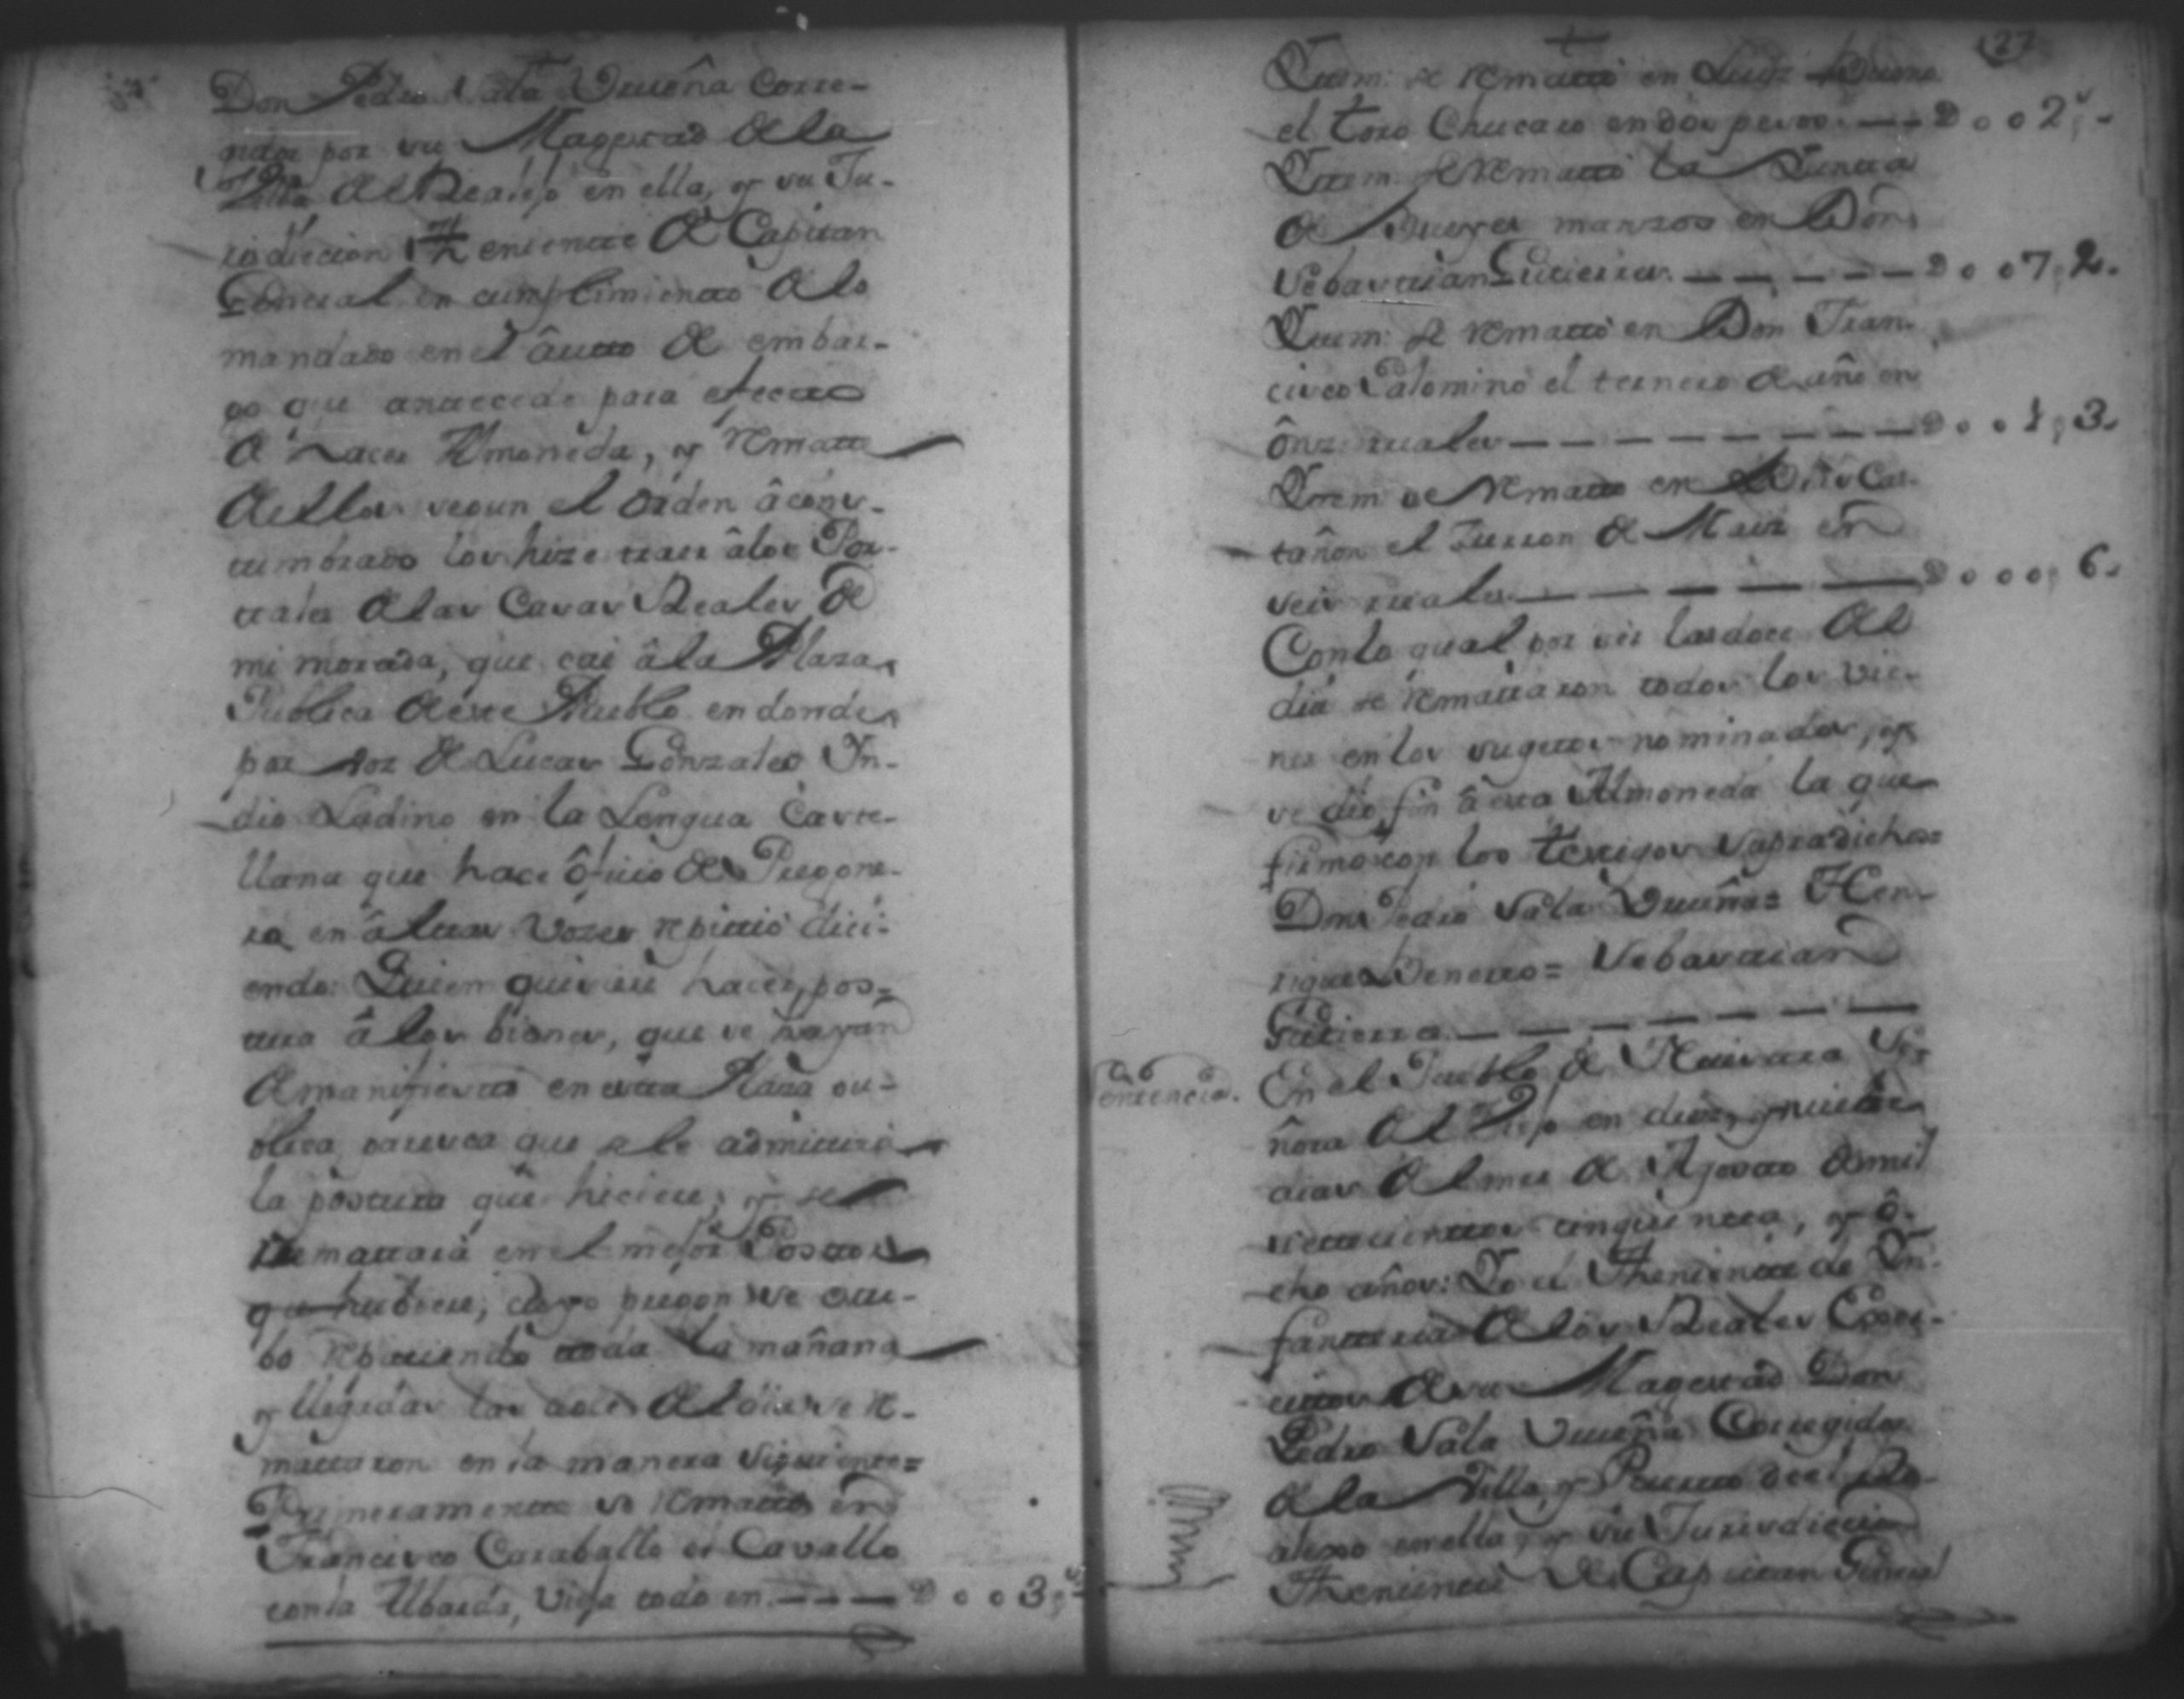 Don Pedro Sala Vrueña Corre-
gidor por su Magestad de la
Villa del Realejo en ella, y su Ju-
risdiccion Theniente de Capitan
General en cumplimiento de lo
mandado en el âutto de embar-
go que antecede para efecto
de hacer Almoneda, y Rematte
de ellos segun el orden âcons-
tumbrado los hize traer âlos Por-
tales de las Casas Reales de
mi morada, que cae âla Plaza
Publica de este Pueblo en donde
por voz de Lucas Gonzales Yn-
dio Ladino en la Lengua Caste-
llana que hace ôficio de Pregone-
ro en âltas Vozes repittió dici-
endo: Quien quisiere hacer pos-
tura â los bienes, que se hayan
de manifiesto en esta Plaza pu-
blica paresca que se le admitira
la postura que hiciere, y se
Remattara en el mejor Posttor
que hubiere, cuyo pregon se estu-
bo repitiendo toda la mañana
y llegadas las doce del dia se re-
mattaron en la manera siguiente=
Primeramente se rematto en
Francisco Caraballo el Cavallo
con la Albarda, Vieja todo en. — — — D o o 3,
27
Ytem: se remattó en Luiz Bueno
el toro Chucaro en dos pesos. — — D o o 2,
Ytem se Remattó la Yunta
de Bueyes manzos en Don
Sebastian Gutierres. — — — — — D o o 7, 2.
Ytem: se remattó en Don Fran-
cisco Palomino el ternero de año en
ônze reales — — — — — — — — D o o 1, 3.
Ytem se Rematto en Cas-
tañon el Zurron de Maiz en
seis reales — — — — — — D o o o, 6.
Con lo qual por ser las doce del
dia se remattaron todos los vie-
nes en los sugettos nominados, y
se dió fin â esta Almoneda la que
firmo con los testigos sapradichos=
Don Pedro Sala Vrueña= Hen-
rigues = Sebastian
Gutierres. — — — — — — —
Sentencia.
En el Pueblo de Nuestra Se-
ñora del Viejo en diez y nuebe
dias del mes de Agosto de mil
settecienttos cinquienta, y ô-
cho años: Yo el Theniente de Yn-
fanteria de los Reales Exer-
cittos de su Magestad Don
Pedro Sala Vrueña Corregidor
de la Villa, y Puerto de el Re-
alexo en ella, y su Jurisdiccion
Theniente de Capitan General